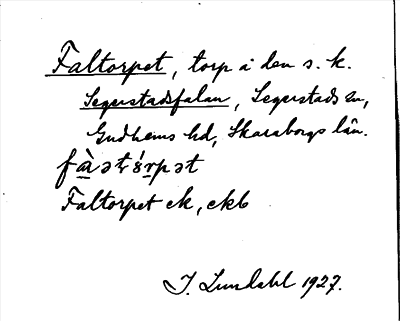 Faltorpet, torp å den s. k.
Segerstadsfalan, Segerstads sn,
Gudhems hd, Skaraborgs län.
Faltorpet ek, ekb
I. Lundahl 1927.